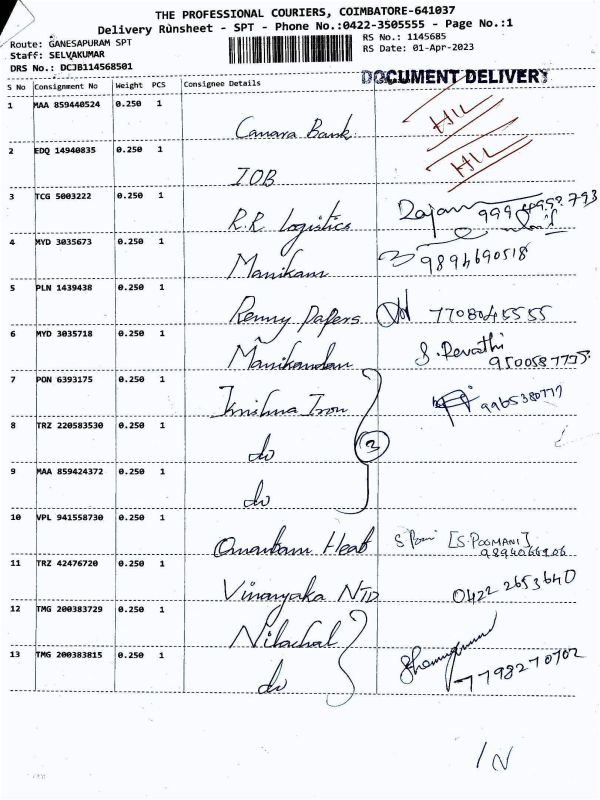 THE PROFESSIONAL COURIERS, COIMBATORE-641037
Delivery Rùnsheet - SPT - Phone No.:0422-3505555 - Page No.:1
Route: GANESAPURAM SPT
RS No.: 1145685
Staff: SELVAKUMAR
RS Date: 01-Apr-2023
DRS No.: DCJB114568501
DOCUMENT DELIVERY
S No Consignment No Weight PCS Consignee Details
1 MAA 859440524 0.250 1
Canara Bank HIL
2 EDQ 14940835 0.250 1
IOB HIL
3 TCG 5003222 0.250 1
R.R. Logistics Rajan
4 MYD 3035673 0.250 1
Manikam 9894690518
5 PLN 1439438 0.250 1
Renny Papers 7708045555
6 MYD 3035718 0.250 1
Manikandan S. Revathi
9500587775
7 PON 6393175 0.250 1
Krishna Iron
8 TRZ 220583530 0.250 1
do 3
9 MAA 859424372 0.250 1
do
10 VPL 941558730 0.250 1
Heat [S.POOMANI]
11 TRZ 42476720 0.250 1
Vinayaka NTD 0422 2653640
12 TMG 200383729 0.250 1
Nilachal
13 TMG 200383815 0.250 1
do 7798270702